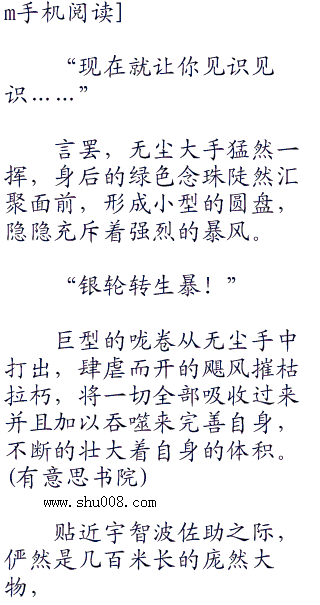 m手机阅读]
“现在就让你见识见
识……”
言罢，无尘大手猛然一
挥，身后的绿色念珠陡然汇
聚面前，形成小型的圆盘，
隐隐充斥着强烈的暴风。
“银轮转生暴！”
巨型的咙卷从无尘手中
打出，肆虐而开的飓风摧枯
拉朽，将一切全部吸收过来
并且加以吞噬来完善自身，
不断的壮大着自身的体积。
(有意思书院)
www.shu008.com
贴近宇智波佐助之际，
俨然是几百米长的庞然大
物，